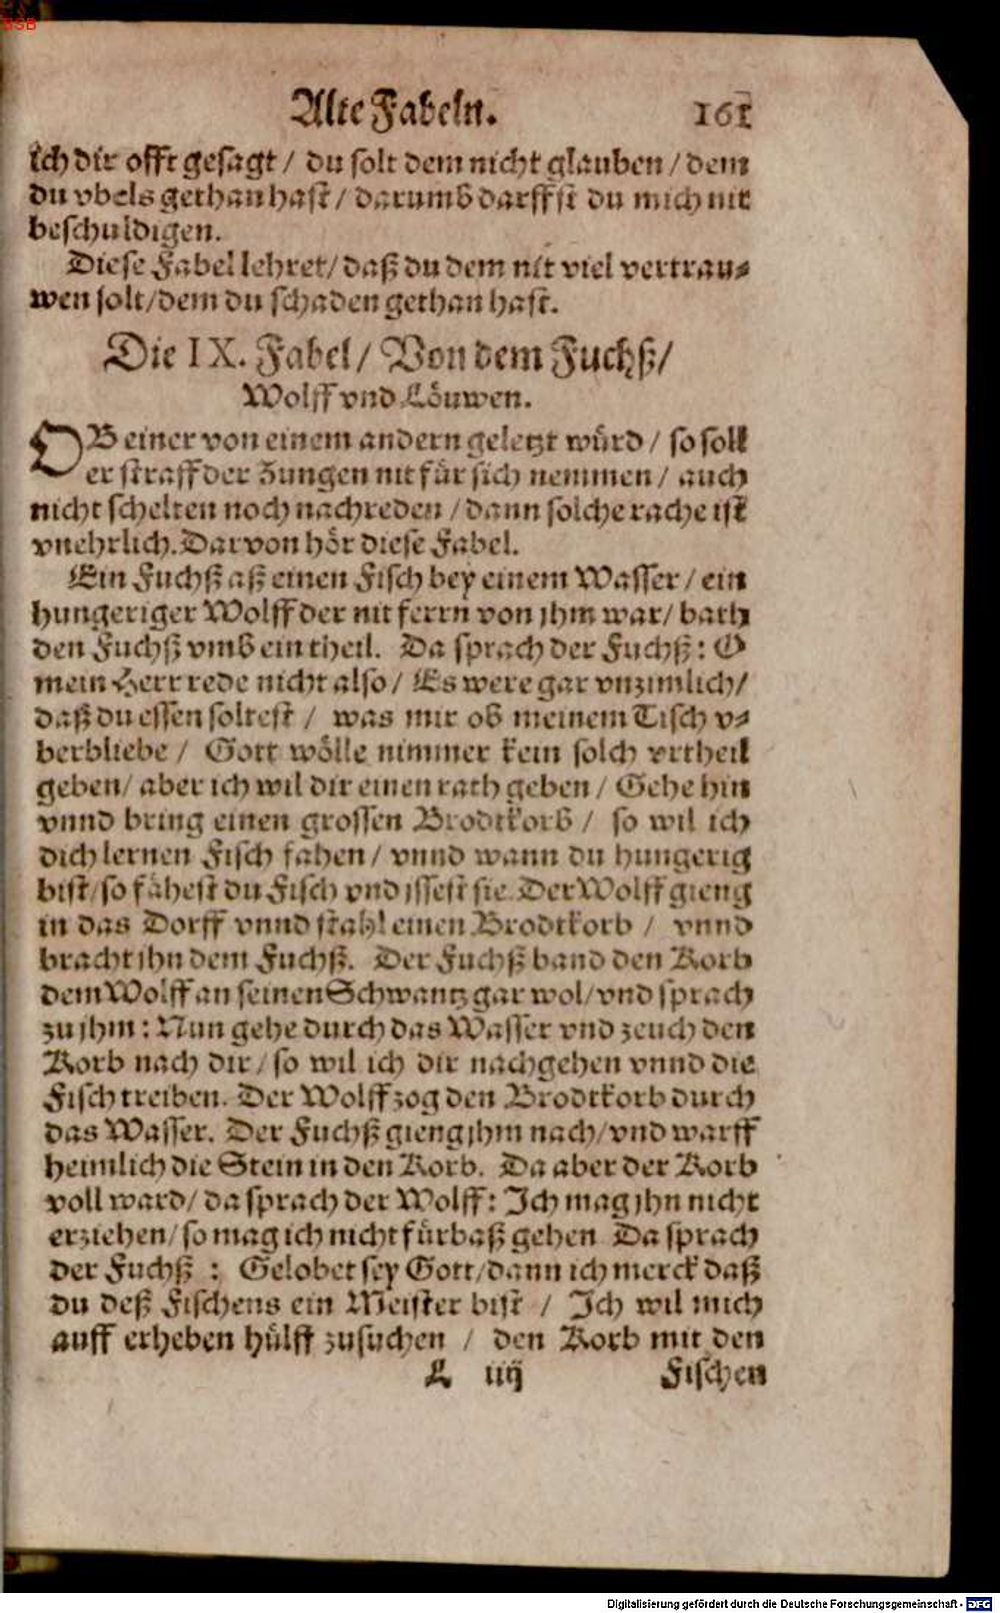 BSB
Alte Fabeln. 161
ich dir offt gesagt / du solt dem nicht glauben / dem
du vbels gethan hast / darumb darffst du mich nit
beschuldigen.
Diese Fabel lehret / daß du dem nit viel vertrau⸗
wen solt / dem du schaden gethan hast.
Die IX. Fabel / Von dem Fuchß /
Wolff vnd Löuwen.
OB einer von einem andern geletzt würd / so soll
er straff der Zungen nit für sich nemmen / auch
nicht schelten noch nachreden / dann solche rache ist
vnehrlich. Darvon hör diese Fabel.
Ein Fuchß aß einen Fisch bey einem Wasser / ein
hungeriger Wolff der nit ferrn von jhm war / bath
den Fuchß vmb ein theil. Da sprach der Fuchß: O
mein Herr rede nicht also / Es were gar vnzimlich /
daß du essen soltest / was mir ob meinem Tisch v⸗
berbliebe / Gott wölle nimmer kein solch vrtheil
geben / aber ich wil dir einen rath geben / Gehe hin
vnnd bring einen grossen Brodtkorb / so wil ich
dich lernen Fisch fahen / vnnd wann du hungerig
bist / so fähest du Fisch vnd jssest sie. Der Wolff gieng
in das Dorff vnnd stahl einen Brodtkorb / vnnd
bracht jhn dem Fuchß. Der Fuchß band den Korb
dem Wolff an seinen Schwantz gar wol / vnd sprach
zu jhm: Nun gehe durch das Wasser vnd zeuch den
Korb nach dir / so wil ich dir nachgehen vnnd die
Fisch treiben. Der Wolff zog den Brodtkorb durch
das Wasser. Der Fuchß gieng jhm nach / vnd warff
heimlich die Stein in den Korb. Da aber der Korb
voll ward / da sprach der Wolff: Ich mag jhn nicht
erziehen / so mag ich nicht fürbaß gehen. Da sprach
der Fuchß : Gelobet sey Gott / dann ich merck daß
du deß Fischens ein Meister bist / Ich wil mich
auff erheben hülff zusuchen / den Korb mit den
L iiij Fischen
Digitalisierung gefördert durch die Deutsche Forschungsgemeinschaft - DFG